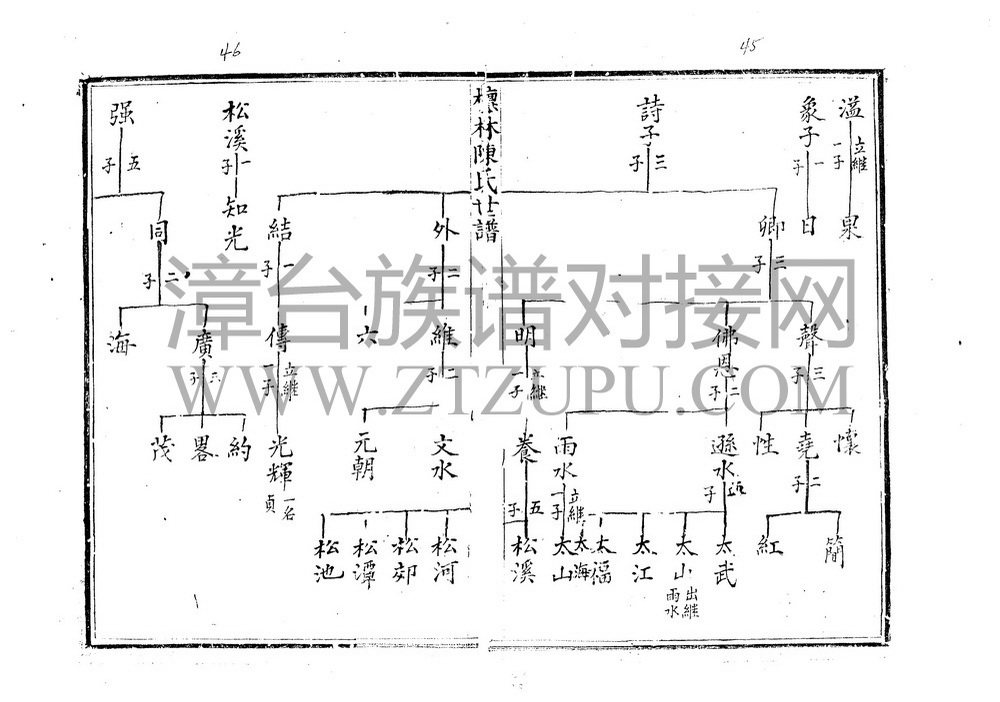 45
46
櫰林陳氏世譜
溢
立繼
一子
泉
象子
一子
日
詩子
三子
卿
三子
外
二子
結
一子
聲
三子
佛恩
二子
明
立繼
一子
維
二子
六
傳
立繼
一子
懷
堯
二子
性
遜水
五子
雨水
立繼
一子
養
五子
文水
元朝
光輝
一名
貞
簡
紅
太武
太山
出繼
雨水
太江
太福
太海
太山
松溪
松河
松郊
松潭
松池
松溪
一子
知光
强
五子
同
二子
廣
三子
海
約
畧
茂
漳台族谱对接网
WWW.ZTZUPU.COM